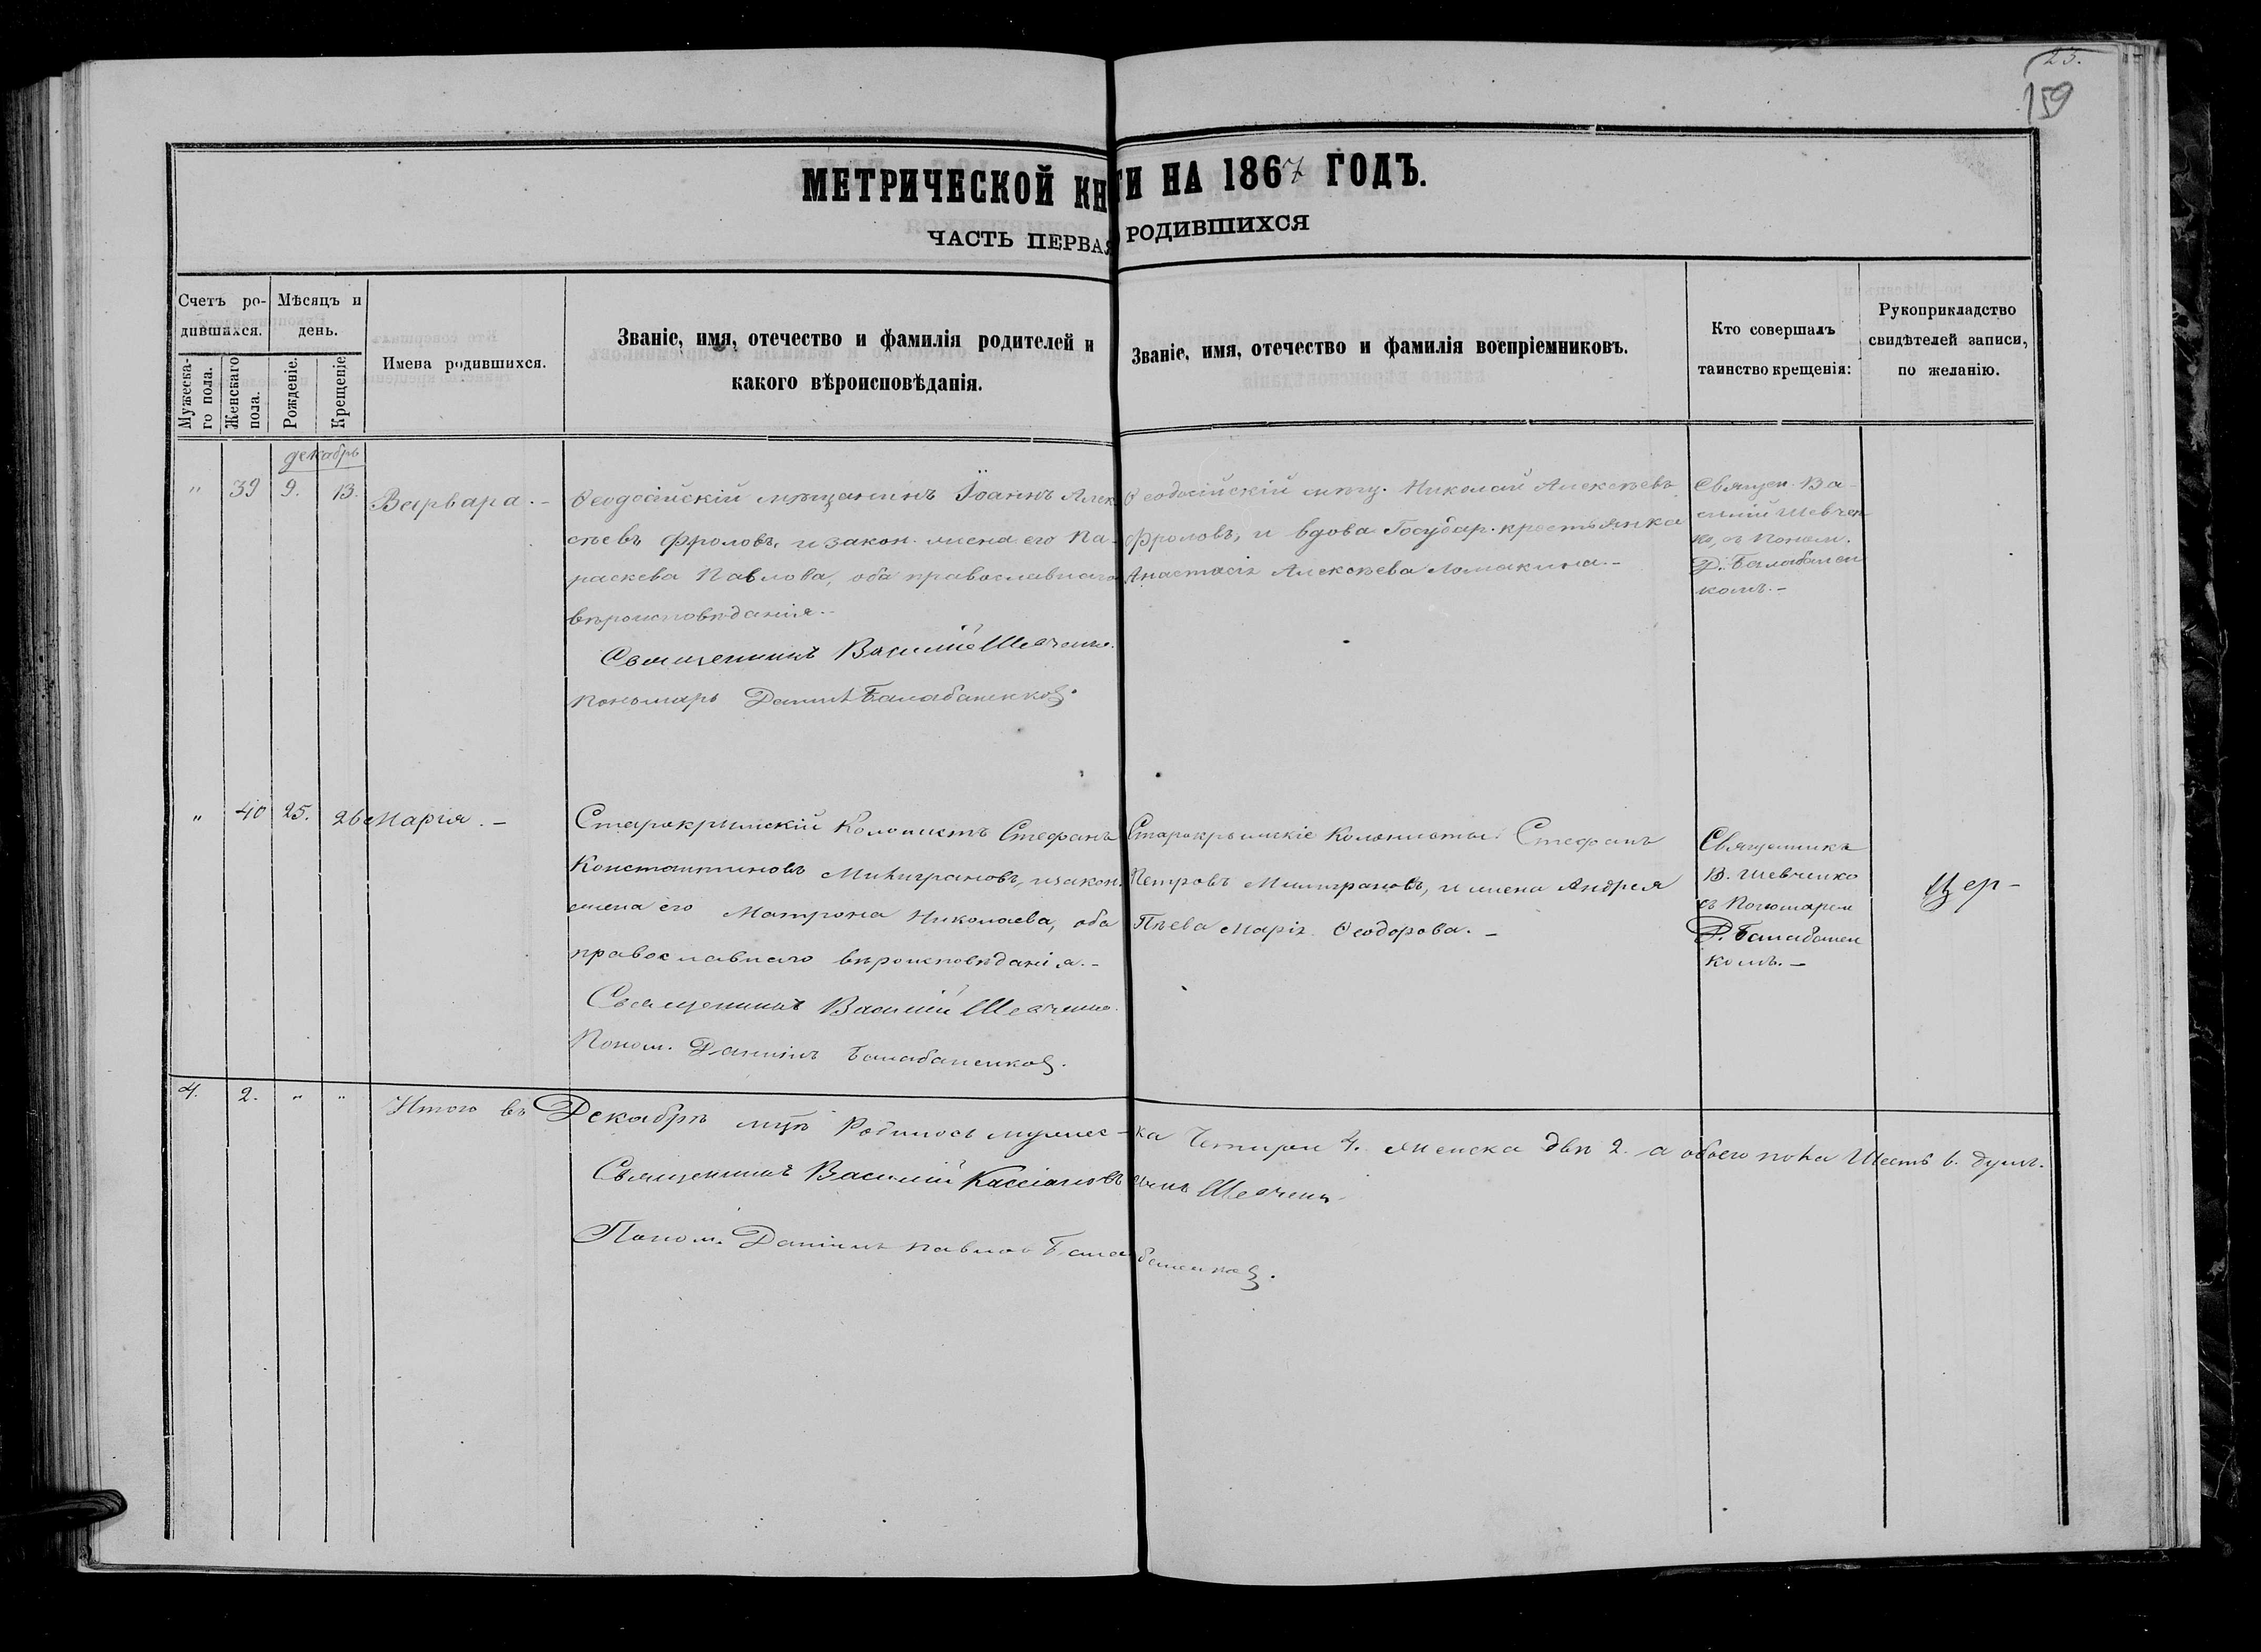 23.
159
МЕТРИЧЕСКОЙ КНИГИ НА 1867 ГОДЪ.
ЧАСТЬ ПЕРВАЯ РОДИВШИХСЯ
Счетъ ро-
дившихся.
Мужеска-
го пола.
Женскаго
пола.
Мѣсяцъ и
день.
Рожденіе.
Крещеніе
Имена родившихся.
Званіе, имя, отечество и фамилія родителей и
какого вѣроисповѣданія.
Званіе, имя, отечество и фамилія воспріемниковъ.
Кто совершалъ
таинство крещенія:
Рукоприкладство
свидѣтелей записи,
по желанію.
декабрь
" 39 9. 13. Варвара. -
Ѳеодосійскій мѣщанинъ Іоаннъ Алек
сѣевъ Фроловъ, и закон. жена его Па-
раскева Павлова, оба православнаго
вѣроисповѣданія. -
Священникъ Василій Шевченко.
Пономарь Даніилъ Балабаненковъ.
Ѳеодосійскій мѣщ. Николай Алексѣевъ
Фроловъ, и вдова Государ. крестьянка
Анастасія Алексѣева Ломакина. -
Священ. Ва-
силій Шевчен
ко, съ Поном.
Д. Балабанен
комъ. -
" 40 25. 26 Марія. -
Старокрымскій Колонистъ Стефанъ
Константиновъ Милиграновъ, и закон.
жена его Матрона Николаева, оба
православнаго вѣроисповѣданія. -
Священникъ Василій Шевченко.
Поном. Даніилъ Балабаненковъ.
Старокрымскіе Колонисты Стефанъ
Петровъ Милиграновъ, и жена Андрея
Пѣева Марія Ѳеодорова. -
Священникъ
В. Шевченко
съ Пономарем
Д. Балабанен
комъ. -
Цер-
4. 2. " " Итого въ Декабрѣ мцѣ Родилось мужес-ка Четыри 4. женска двѣ 2. а обоего пола Шесть 6. душъ.
Священникъ Василій Кассіановъ сынъ Шевчен
Поном. Даніилъ Павлов Балабаненковъ.